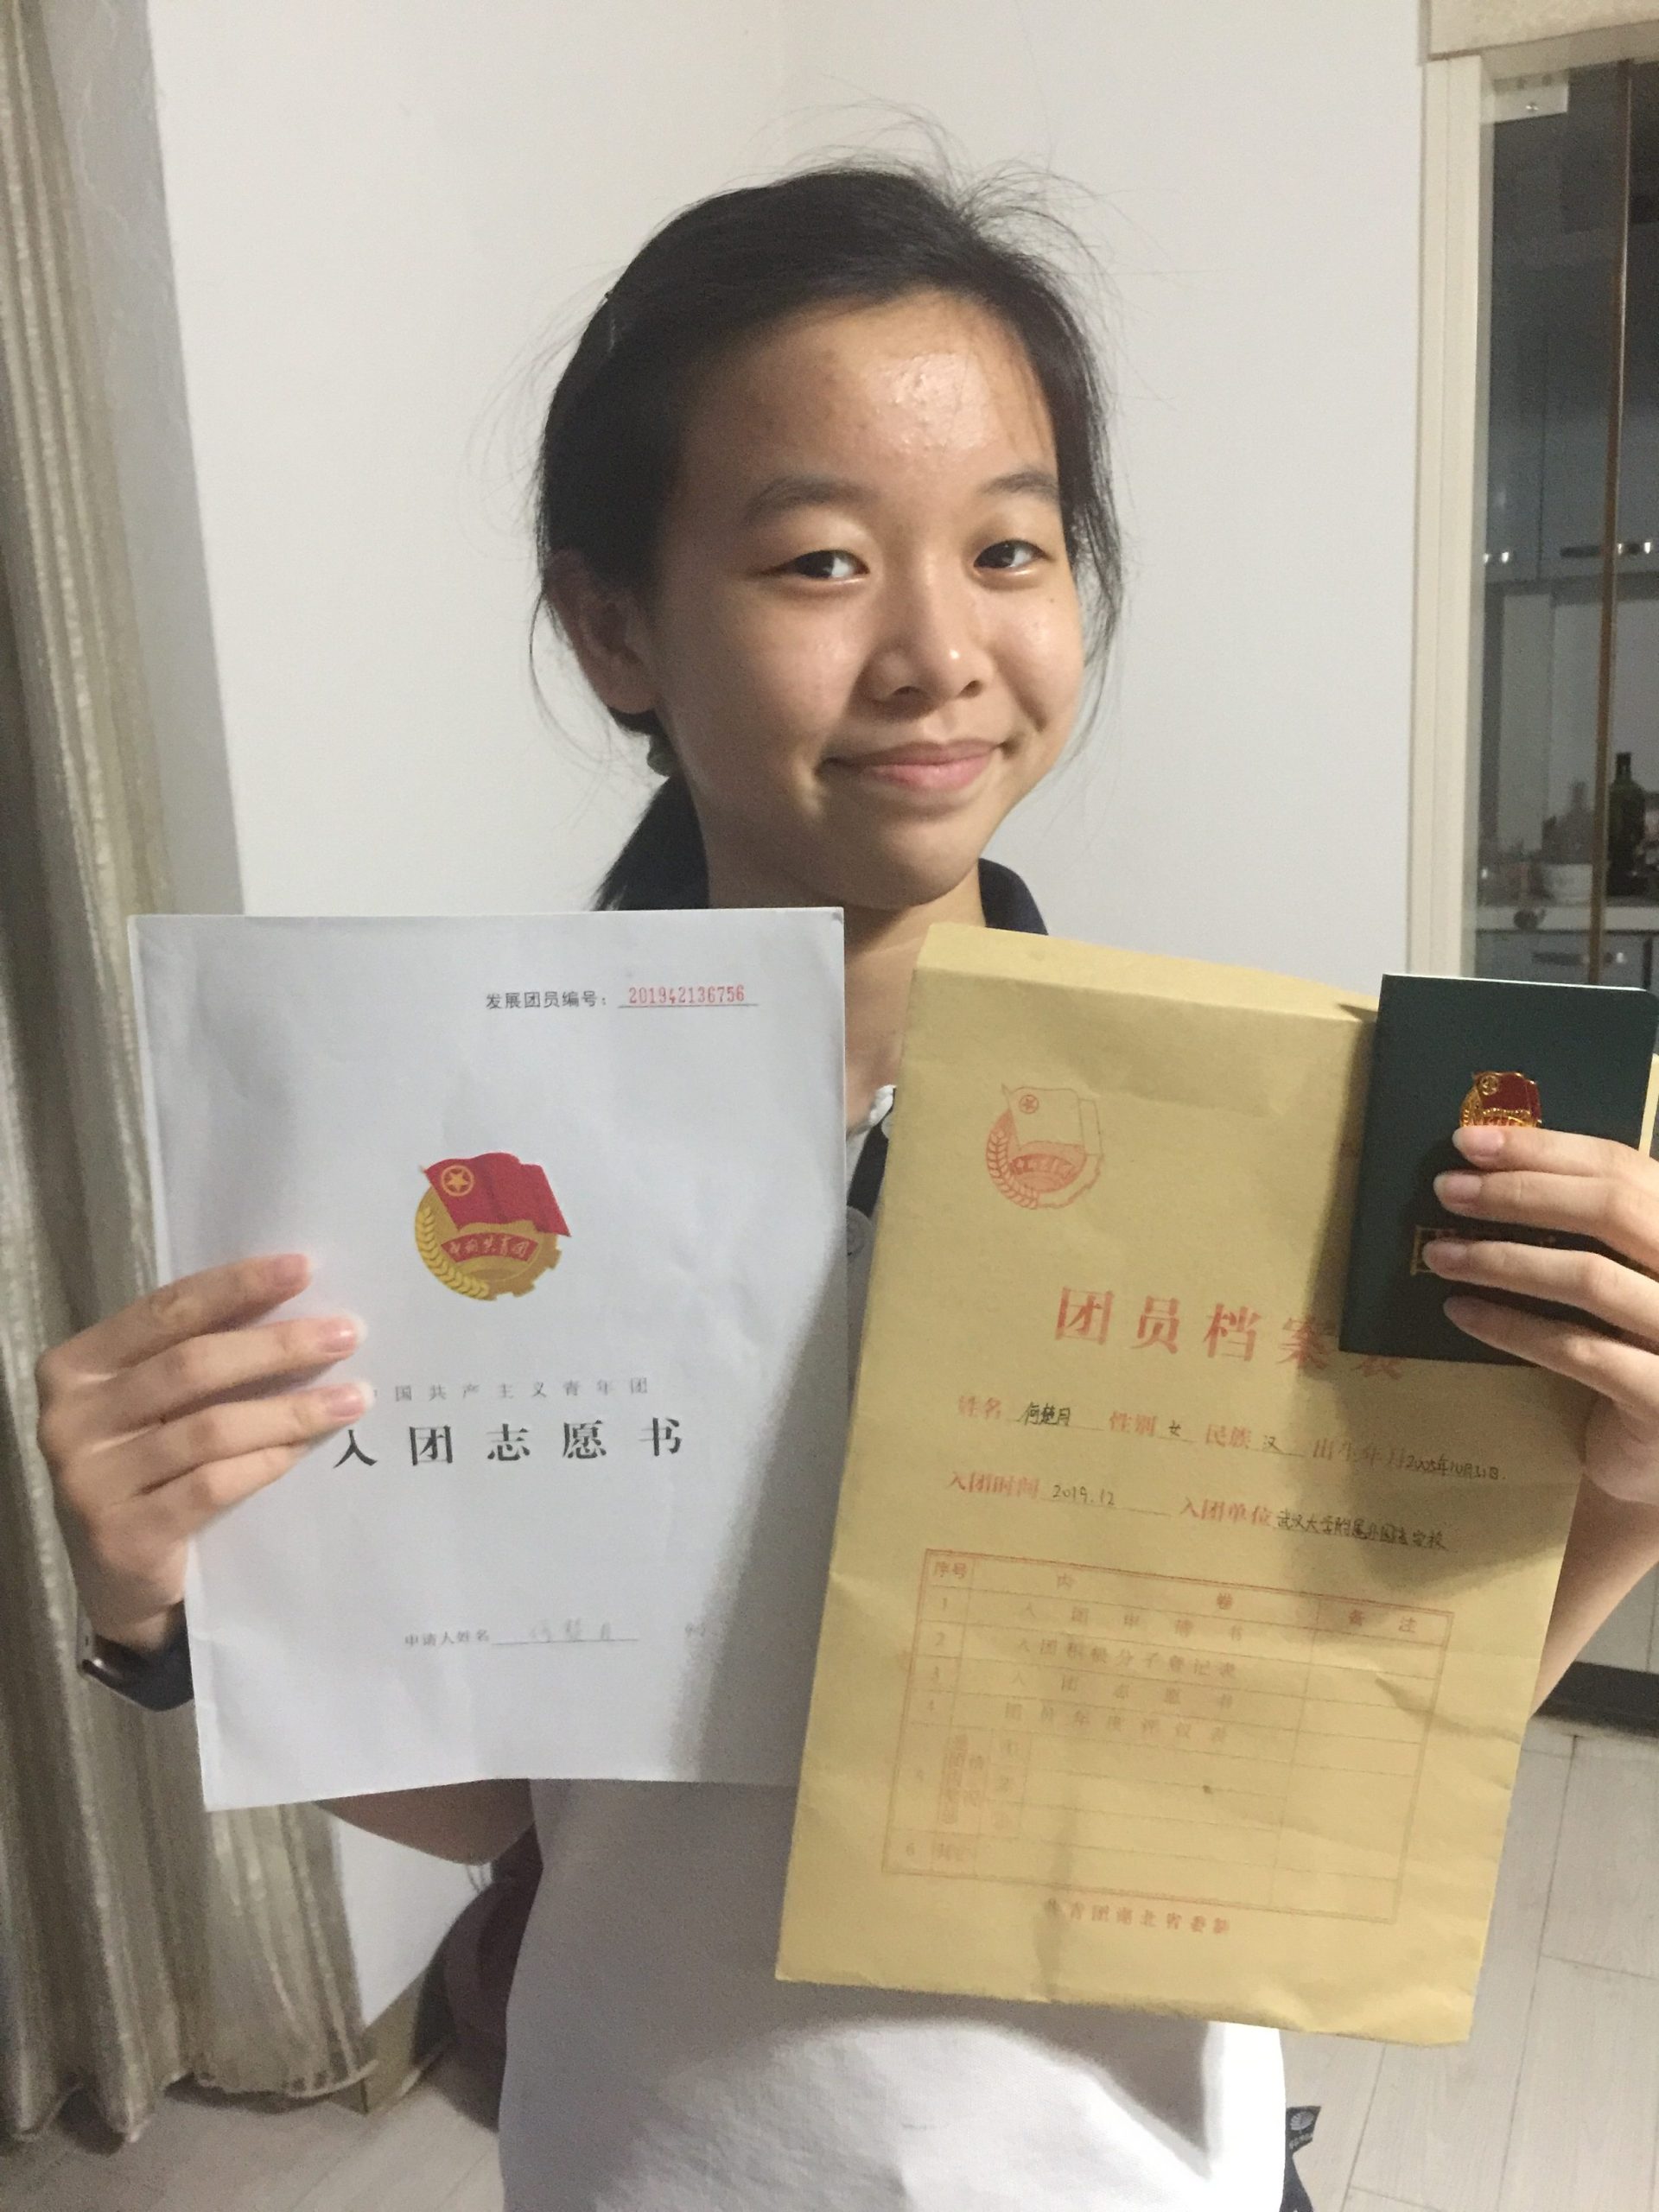 发展团员编号：201942136756
中国共青团
中国共产主义青年团
入团志愿书
申请人姓名 何楚月
团员档案袋
姓名 何楚月 性别 女 民族 汉 出生年月 2005年10月31日.
入团时间 2019.12 入团单位 武汉大学附属外国语学校
序号 内 卷 备 注
1 入团申请书
2 入团积极分子登记表
3 入团志愿书
4 团员年度评议表
5
6 其它
共青团湖北省委制